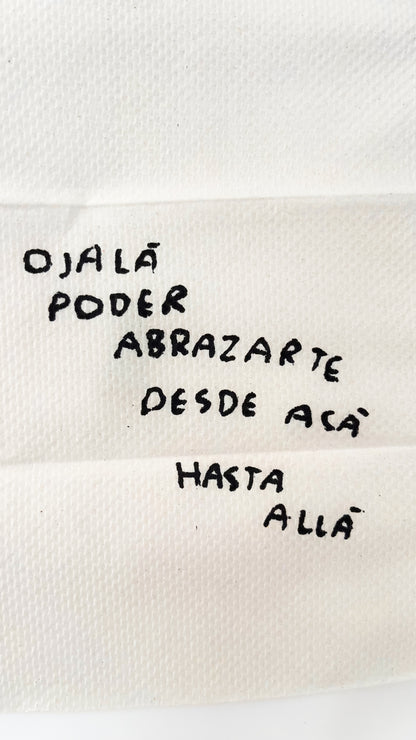 OJALÁ
PODER
ABRAZARTE
DESDE ACÁ
HASTA
ALLÁ